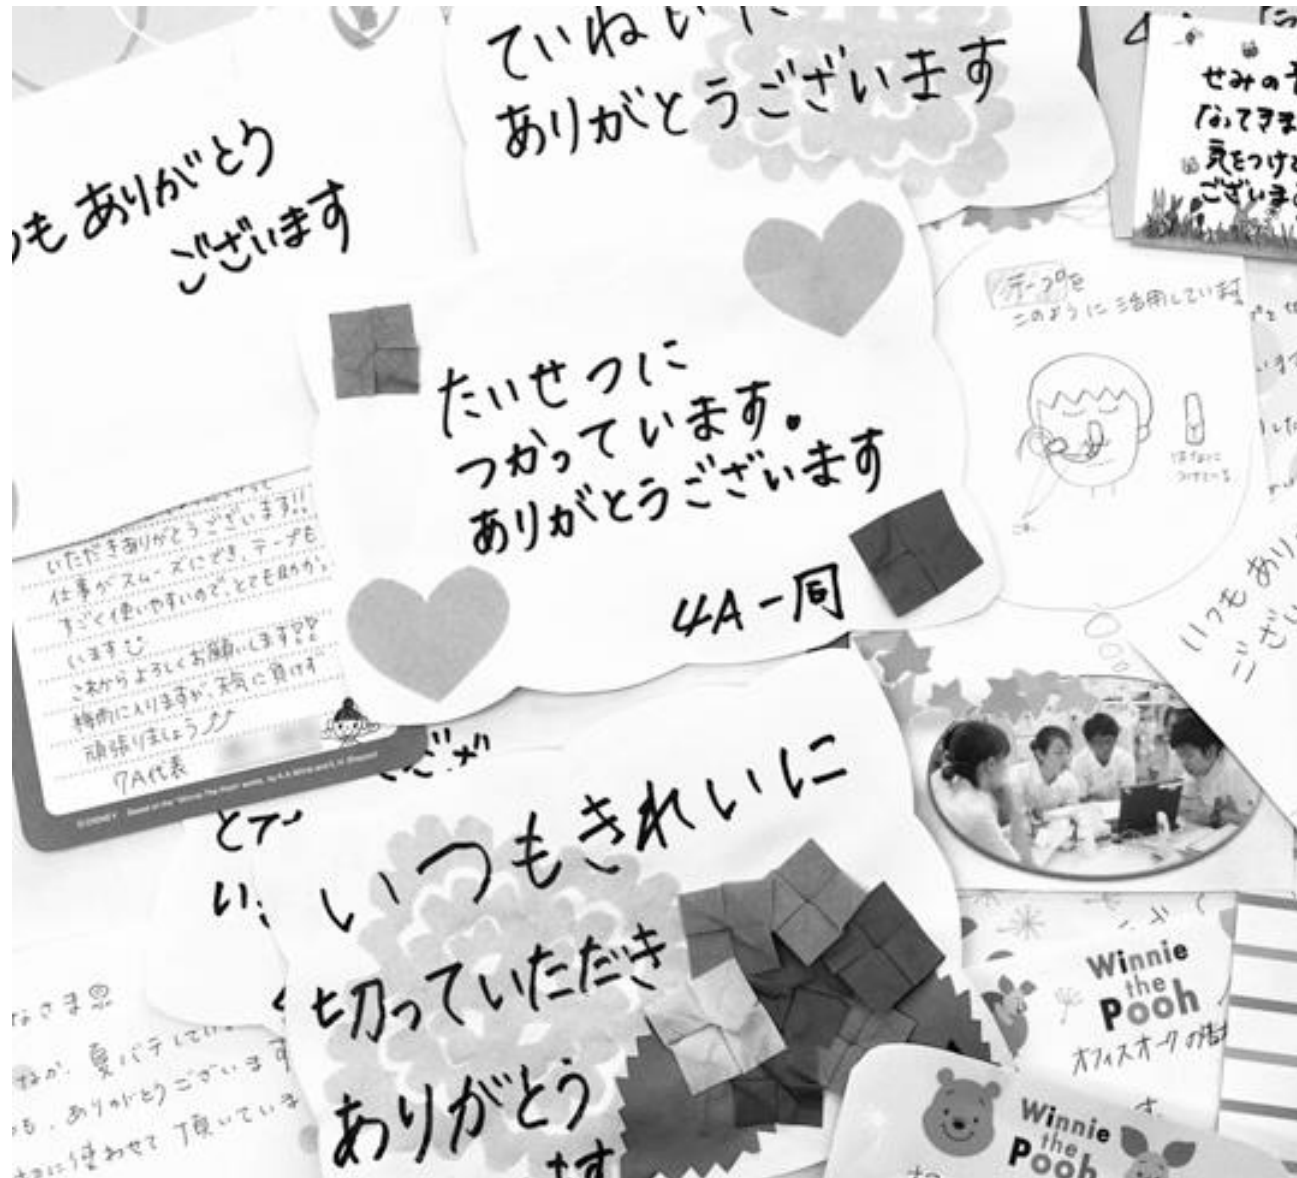 ていねいに
ありがとうございます
もありがとう
ございます
せみの
なってきま
気をつけ
ございま
テープを
このように活用しています
はなに
つけている
たいせつに
つかっています。
ありがとうございます
4A一同
いただきありがとうございます!!
仕事がスムーズにでき、テープも
すごく使いやすいので、とても助かっ
います
これからよろしくお願いします!!
梅雨に入りますが天気に負けず
頑張りましょう
7A代表
©DISNEY
いつもあり
ござい
いつもきれいに
切っていただき
ありがとう
ます
なさま
夏バテしてい
も、ありがとうございます
に使わせて頂いていま
Winnie
the
Pooh
オフィスオークの皆
Winnie
the
Pooh